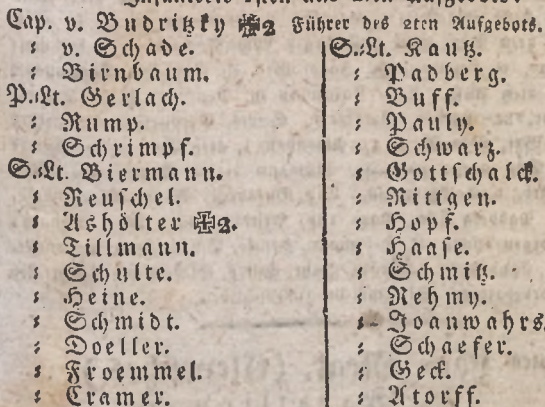 Cap. v. Budritzky ✠2 Führer des 2ten Aufgebots.
: v. Schade.
: Birnbaum.
P.:Lt. Gerlach.
: Rump.
: Schrimpf.
S.:Lt. Biermann.
: Neuschel.
: Ashölter ✠2.
: Tillmann.
: Schulte.
: Heine.
: Schmidt.
: Doeller.
: Froemmel.
: Cramer.
S.:Lt. Kautz.
: Padberg.
: Buff.
: Pauly.
: Schwarz.
: Gottschalck.
: Nittgen.
: Hopf.
: Haase.
: Schmitz.
: Nehmy.
: Joanwahrs.
: Schaefer.
: Geck.
: Atorff.